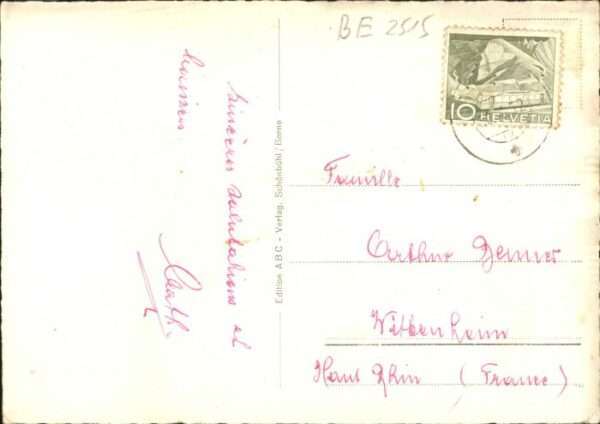 BE 2515
10 HELVETIA
sincères salutations et
Edition ABC - Verlag, Schönbühl/Berne
Famille
Arthur
Wittenheim
Haut Rhin (France)